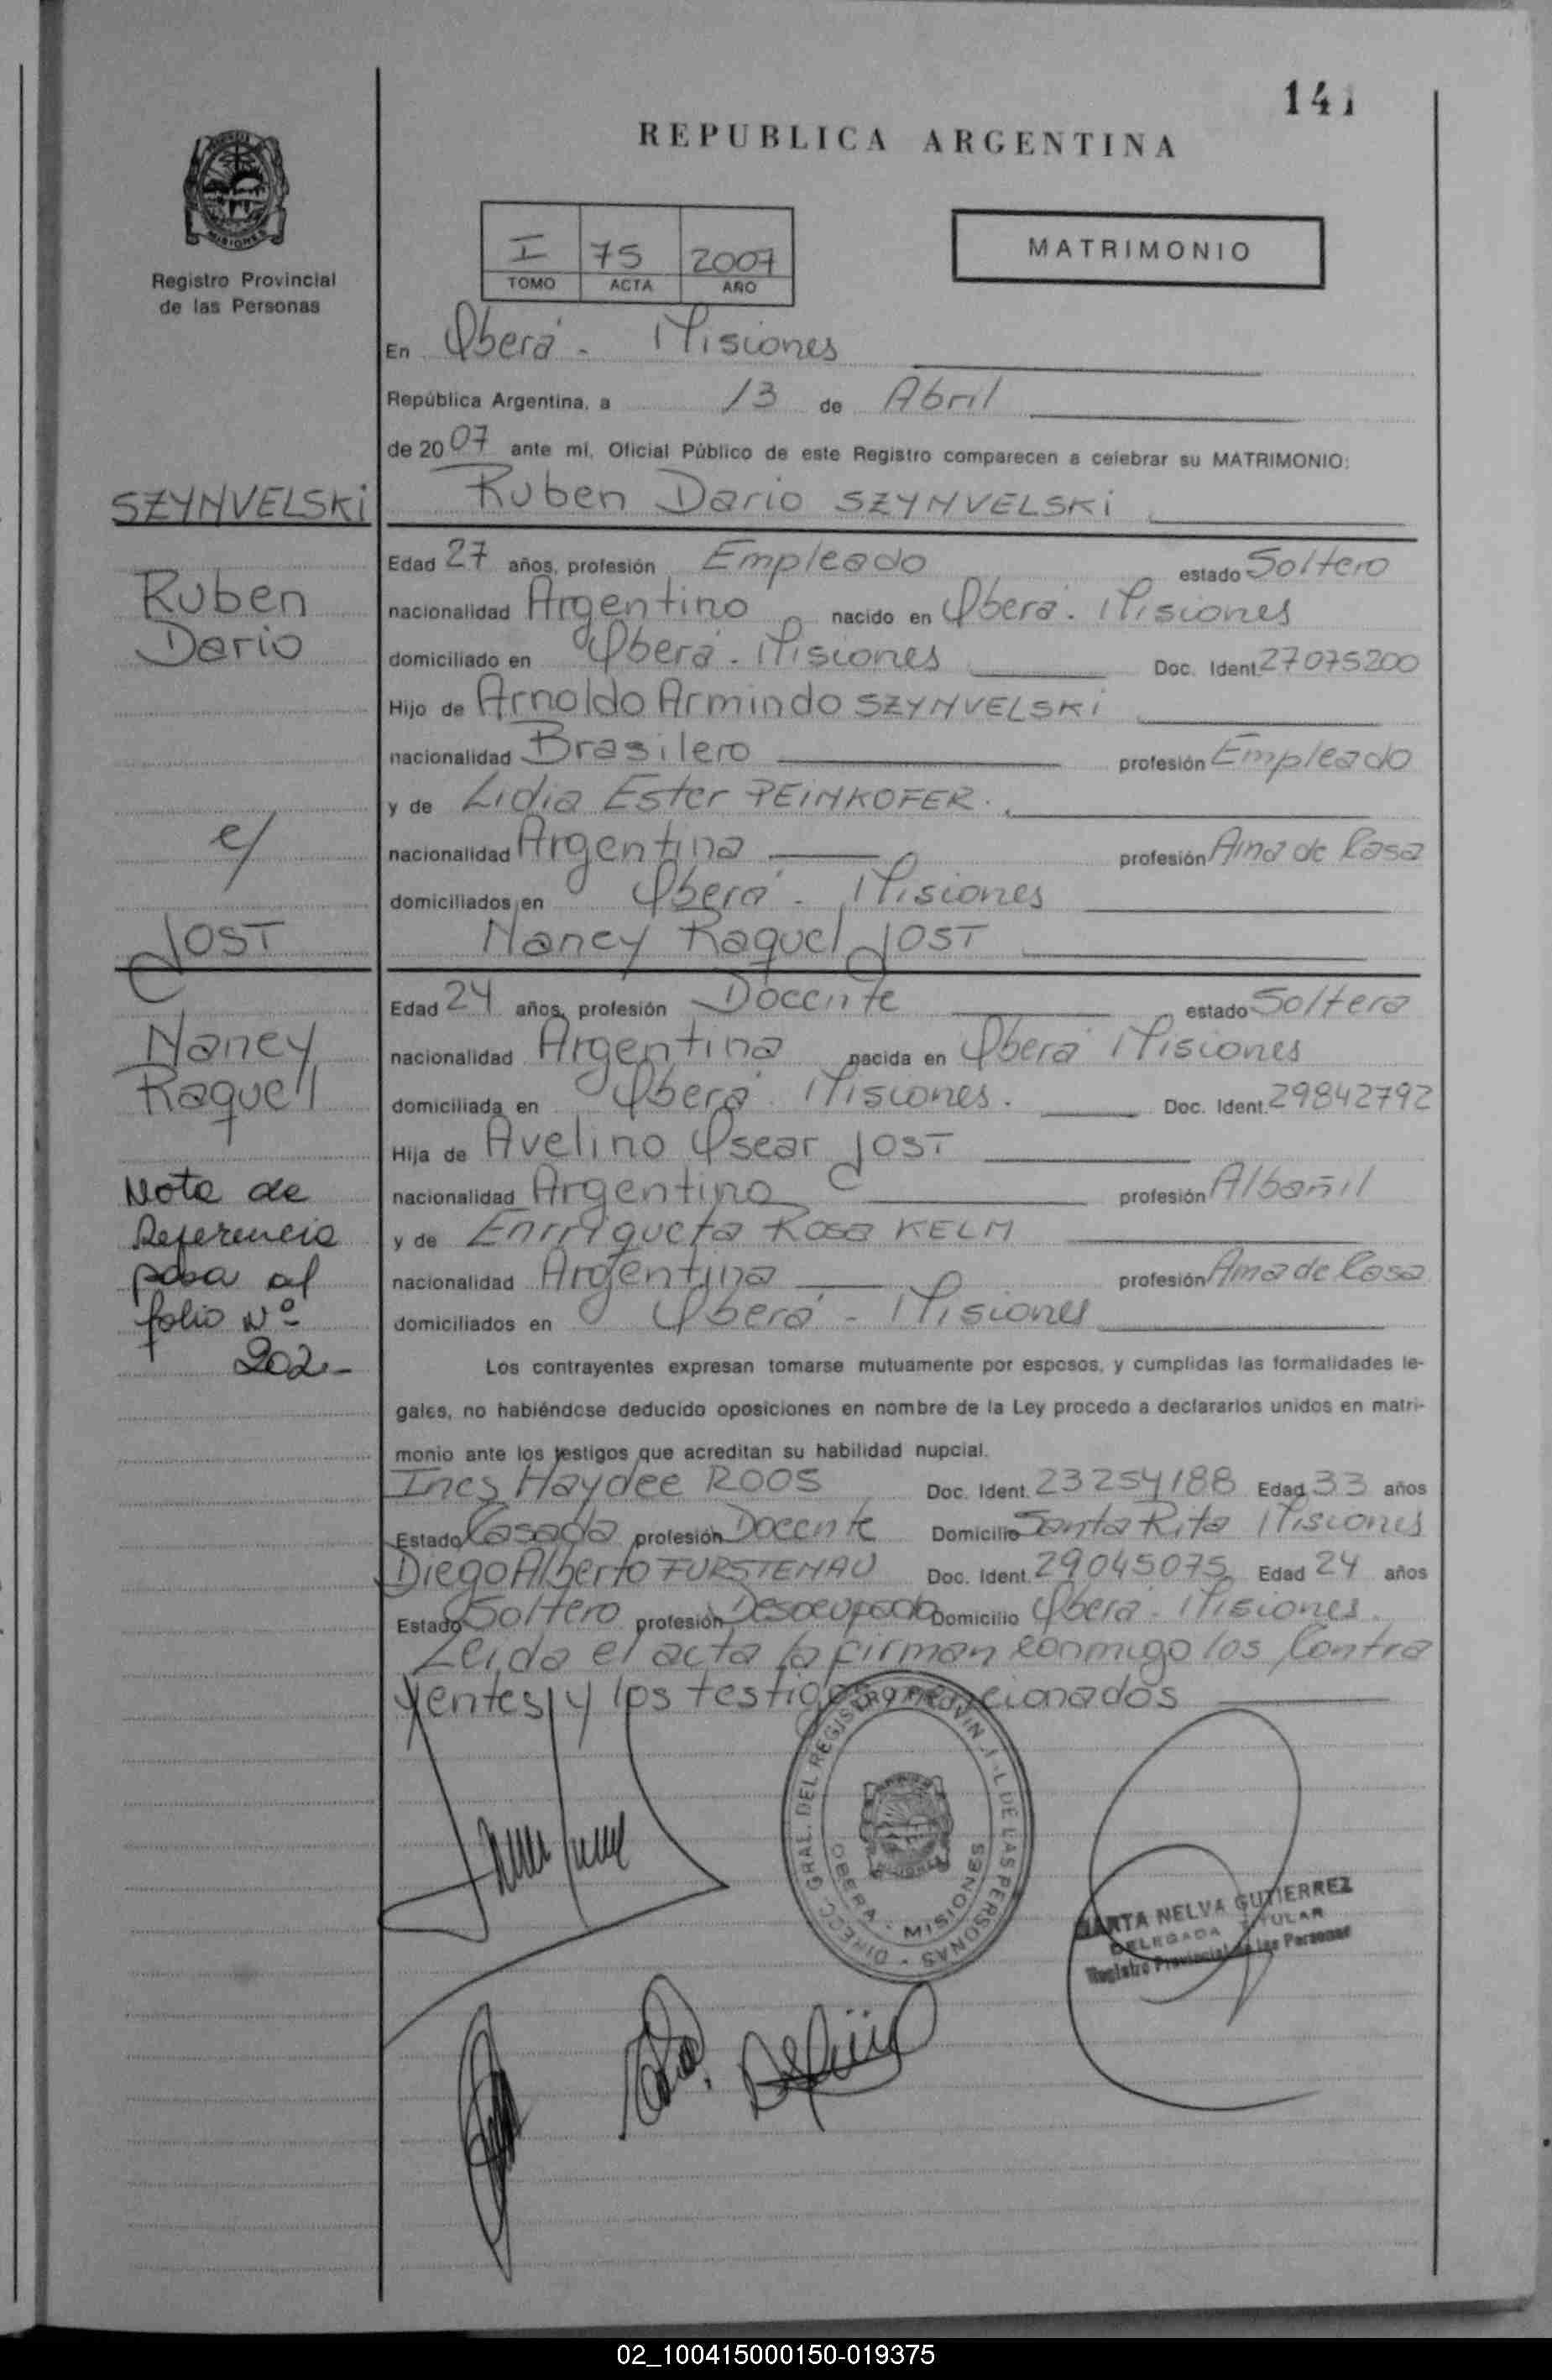 141
REPUBLICA ARGENTINA
MISIONES
Registro Provincial
de las Personas
I 75 2007
TOMO ACTA AÑO
MATRIMONIO
En Oberá - Misiones
República Argentina, a 13 de Abril
de 2007 ante mi, Oficial Público de este Registro comparecen a celebrar su MATRIMONIO:
SZYNVELSKi
Ruben Dario SZYNVELSKi
Ruben
Dario
Edad 27 años, profesión Empleado estado Soltero
nacionalidad Argentino nacido en Oberá - Misiones
domiciliado en Oberá - Misiones Doc. Ident. 27075200
Hijo de Arnoldo Armindo SZYNVELSKi
nacionalidad Brasilero profesión Empleado
y de Lidia Ester PEiNKOFER.
c/
nacionalidad Argentina profesión Ama de Casa
domiciliados en Oberá - Misiones
JOST
Nancy Raquel JOST
Nancy
Raquel
Edad 24 años, profesión Docente estado Soltera
nacionalidad Argentina nacida en Oberá Misiones
domiciliada en Oberá - Misiones. Doc. Ident. 29842792
Hija de Avelino Oscar JOST
Nota de
Referencia
pasa al
folio Nº
202.-
nacionalidad Argentino profesión Albañil
y de Enrriqueta Rosa KELM
nacionalidad Argentina profesión Ama de Casa
domiciliados en Oberá - Misiones
Los contrayentes expresan tomarse mutuamente por esposos, y cumplidas las formalidades le-
gales, no habiéndose deducido oposiciones en nombre de la Ley procedo a declararlos unidos en matri-
monio ante los testigos que acreditan su habilidad nupcial.
Ines Haydee ROOS Doc. Ident. 23254188 Edad 33 años
Estado Casada profesión Docente Domicilio Santa Rita Misiones
Diego Alberto FURSTENAU Doc. Ident. 29045075 Edad 24 años
Estado Soltero profesión Desocupado Domicilio Oberá - Misiones.
Leida el acta la firman conmigo los Contra
yentes y los testigos
DIRECC. GRAL. DEL REGISTRO PROVINCIAL DE LAS PERSONAS
OBERA - MISIONES
MARTA NELVA GUTIERREZ
DELEGADA TITULAR
Registro Provincial de las Personas
02_100415000150-019375